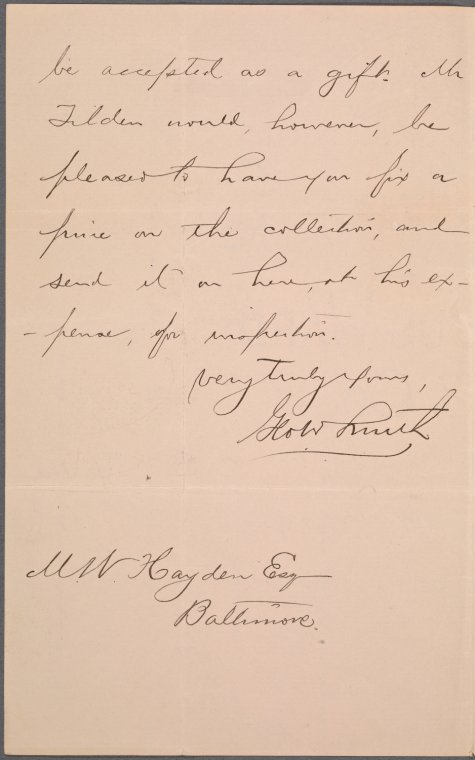 be accepted as a gift. Mr
Tilden would, however, be
pleased to have you fix a
price on the collection, and
send it on here, at his ex-
-pense, for inspection.
Very truly yours,
Geo W Smith
M. W. Hayden Esq
Baltimore.